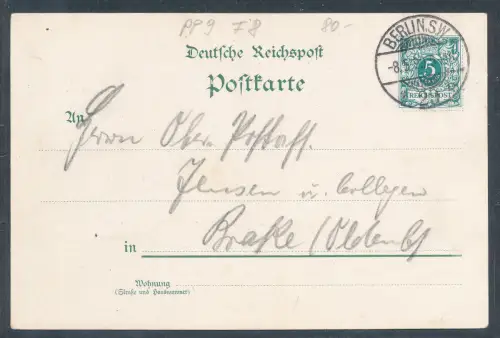 PP9 F8 80.-
Deutsche Reichspost
Postkarte
BERLIN, S.W.
-8.5.
5
REICHSPOST
An
Herrn Ober-Postass.
Jensen u. Collegen
in Brake (Oldenb)
Wohnung
(Straße und Hausnummer)